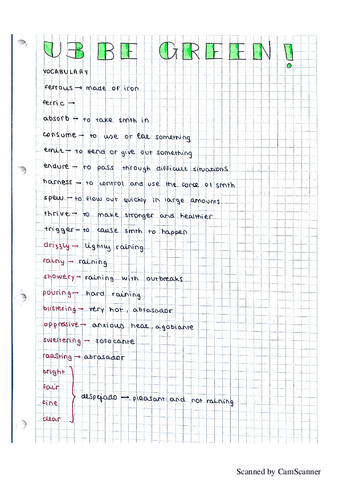 U3 BE GREEN!
VOCABULARY
ferrous → made of iron
ferric →
absorb → to take smth in
consume → to use or eat something
emit → to send or give out something
endure → to pass through difficult situations
harness → to control and use the force of smth
spew → to flow out quickly in large amounts
thrive → to make stronger and healthier
trigger → to cause smth to happen
drizzly → lightly raining
rainy → raining
showery → raining with outbreaks
pouring → hard raining
blistering → very hot, abrasador
oppressive → anxious heat, agobiante
sweltering → sofocante
roasting → abrasador
bright
fair
fine
clear
despejado → pleasant and not raining
Scanned by CamScanner